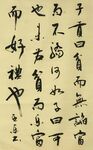 子貢曰貧而無諂富
而不驕何如子曰可
也未若貧而樂富
而好禮也